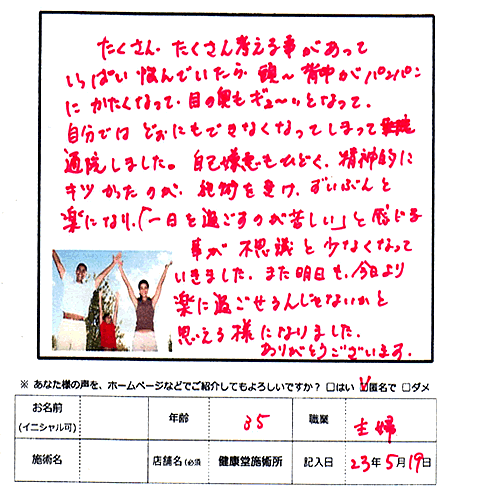 たくさん、たくさん考える事があって
いっぱい悩んでいたら、頭〜背中がパンパン
にかたくなって、目の奥もギューいとなって、
自分ではどおにもできなくなってしまって
通院しました。自己嫌悪もひどく、精神的に
キツかったのが、施術を受け、ずいぶんと
楽になり、「一日を過ごすのが苦しい」と感じる
事が不思議と少なくなって
いきました。また明日も、今日より
楽に過ごせるんじゃないかと
思える様になりました。
ありがとうございます。
※ あなた様の声を、ホームページなどでご紹介してもよろしいですか? □はい ☑匿名で □ダメ
お名前
(イニシャル可)
年齢 35 職業 主婦
施術名 店舗名(必須 健康堂施術所 記入日 23年5月19日